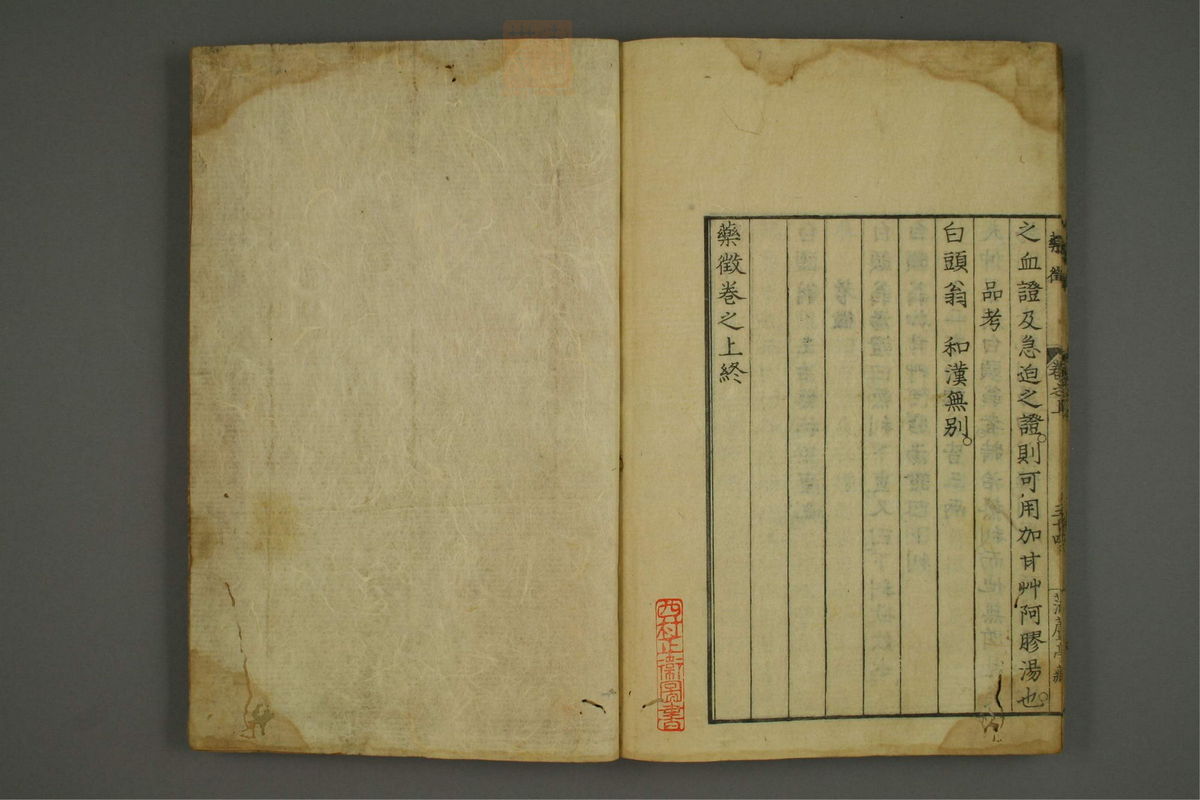 之血證及急迫之證。則可用加甘艸阿膠湯也。
品考
白頭翁 和漢無別。
藥徵卷之上終
西村正衞圖書